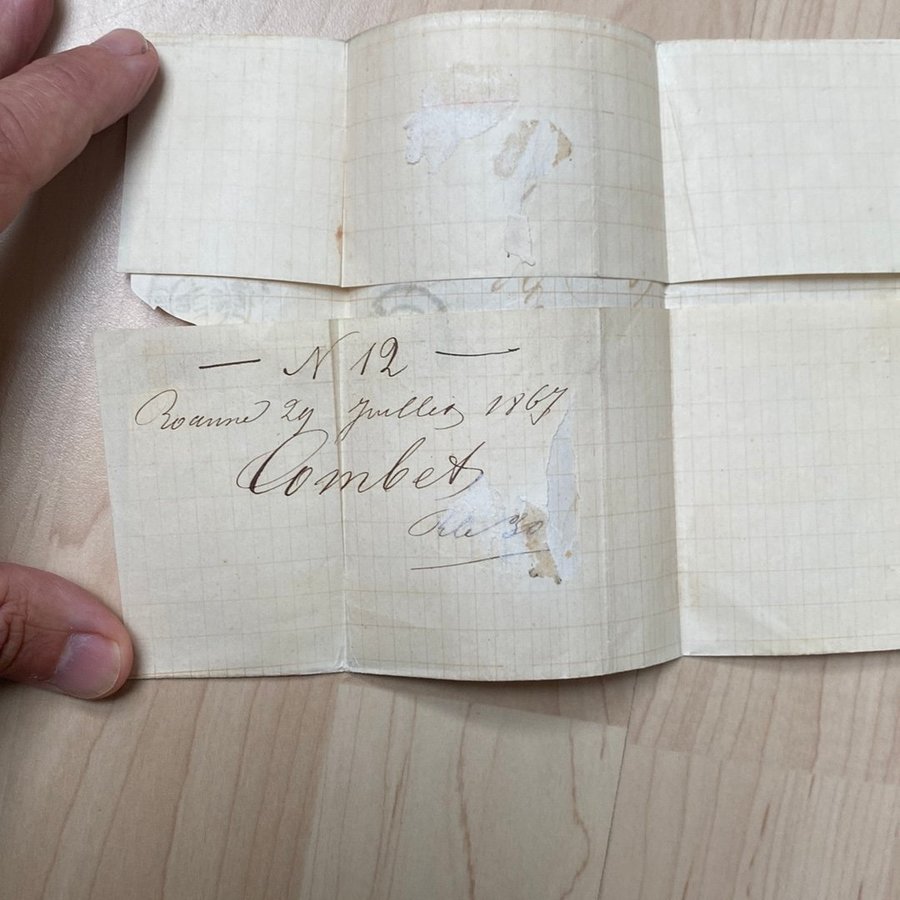 — N 12 —
Roanne 29 Juillet 1867
Combet
30